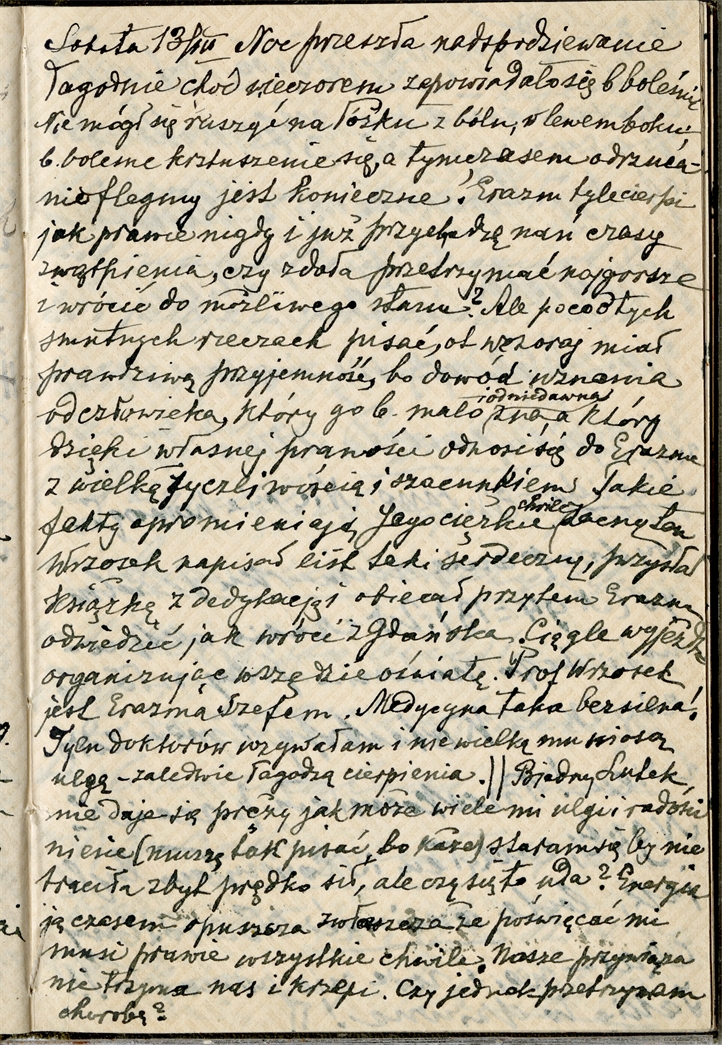 Sobota 13/III Noc przeszła nadspodziewanie
łagodnie choć wieczorem zapowiadało się b boleśnie
Nie mógł się ruszyć na łóżku z bólu, w lewem boku
b. bolesne krztuszenie się, a tymczasem odrzuca-
nie flegmy jest konieczne! Erazm tyle cierpi
jak prawie nigdy i już przychodzą nań czasy
zwątpienia, czy zdoła przetrzymać najgorsze
i wrócić do możliwego stanu? Ale po co o tych
smutnych rzeczach pisać, ot wczoraj miał
prawdziwą przyjemność, bo dowód uznania
od człowieka, który go b. mało i od niedawna zna a który
dzięki własnej prawości odnosi się do Erazma
z wielką życzliwością i szacunkiem Takie
fakty opromieniają Jego ciężkie chwile Zacny ten
Wrzosek napisał list taki serdeczny, przysłał
książkę z dedykacją i obiecał przytem Erazma
odwiedzić jak wróci z Gdańska. Ciągle wyjeżdża
organizując wszędzie oświatę. Prof Wrzosek
jest Erazma Szefem. Medycyna taka bezsilna!
Tylu doktorów wzywałam i niewielką mu niosą
ulgę – zaledwie łagodzą cierpienia. || Biedny Lutek,
nie daje się pręży jak może wiele mi ulgi i radości
niesie (muszę tak pisać, bo każe) staram się by nie
traciła zbyt prędko sił, ale czy się to uda? Energia
ją czasem opuszcza zwłaszcza że poświęcać mi
musi prawie wszystkie chwile. Nasze przywiąza
nie trzyma nas i krzepi. Czy jednak przetrzymam
chorobę?